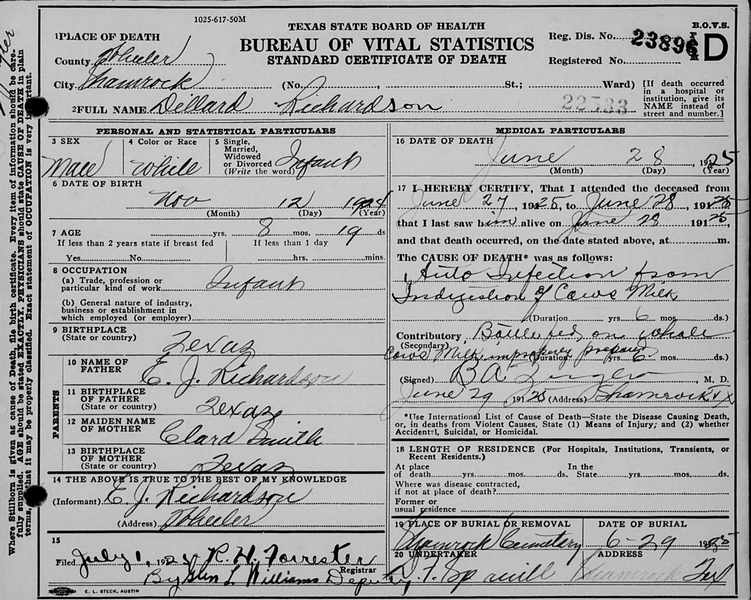 1025-617-50M
TEXAS STATE BOARD OF HEALTH
B.O.V.S.
BUREAU OF VITAL STATISTICS
STANDARD CERTIFICATE OF DEATH
Reg. Dis. No.
23896 D
Registered No.
1 PLACE OF DEATH
County Wheeler
City Shamrock (No. St.; Ward)
[If death occurred in a hospital or institution, give its NAME instead of street and number.]
2 FULL NAME Dillard Richardson
22533
PERSONAL AND STATISTICAL PARTICULARS
3 SEX Male
4 Color or Race White
5 Single, Married, Widowed or Divorced (Write the word) Infant
6 DATE OF BIRTH
Nov 12 1924
(Month) (Day) (Year)
7 AGE yrs. 8 mos. 19 ds
If less than 2 years state if breast fed
If less than 1 day
Yes No hrs. mins
8 OCCUPATION
(a) Trade, profession or particular kind of work Infant
(b) General nature of industry, business or establishment in which employed (or employer)
9 BIRTHPLACE
(State or country) Texas
PARENTS
10 NAME OF FATHER E. J. Richardson
11 BIRTHPLACE OF FATHER
(State or country) Texas
12 MAIDEN NAME OF MOTHER Clard Smith
13 BIRTHPLACE OF MOTHER
(State or country) Texas
14 THE ABOVE IS TRUE TO THE BEST OF MY KNOWLEDGE
(Informant) E. J. Richardson
(Address) Wheeler
15
Filed July 1, 192 R. H. Forrester
Registrar
By L. Williams Deputy
E. L. STECK, AUSTIN
MEDICAL PARTICULARS
16 DATE OF DEATH
June 28 1925
(Month) (Day) (Year)
17 I HEREBY CERTIFY, That I attended the deceased from
June 27, 1925, to June 28 1925
that I last saw him alive on June 28 1925
and that death occurred, on the date stated above, at m.
The CAUSE OF DEATH* was as follows:
Auto Infection from
Indigestion of Cows Milk
(Duration yrs. 6 mos. ds.
Contributory Bottle fed on whole
(Secondary)
Cows Milk improperly prepared
(Duration) yrs. 6 mos. ds.
(Signed) B A M. D.
June 29 1925 (Address) Shamrock Tx
*Use International List of Cause of Death—State the Disease Causing Death, or, in deaths from Violent Causes, State (1) Means of Injury; and (2) whether Accidental, Suicidal, or Homicidal.
18 LENGTH OF RESIDENCE (For Hospitals, Institutions, Transients, or Recent Residents.)
At place of death yrs. mos. ds.
In the State yrs. mos. ds.
Where was disease contracted, if not at place of death?
Former or usual residence
19 PLACE OF BURIAL OR REMOVAL
Shamrock Cemetery
DATE OF BURIAL
6-29 1925
20 UNDERTAKER
ADDRESS
Shamrock Tex
Where Stillborn is given as cause of Death, file birth certificate. Every item of information should be care-
fully supplied. AGE should be stated EXACTLY. PHYSICIANS should state CAUSE OF DEATH in plain
terms, that it may be properly classified. Exact statement of OCCUPATION is very important.